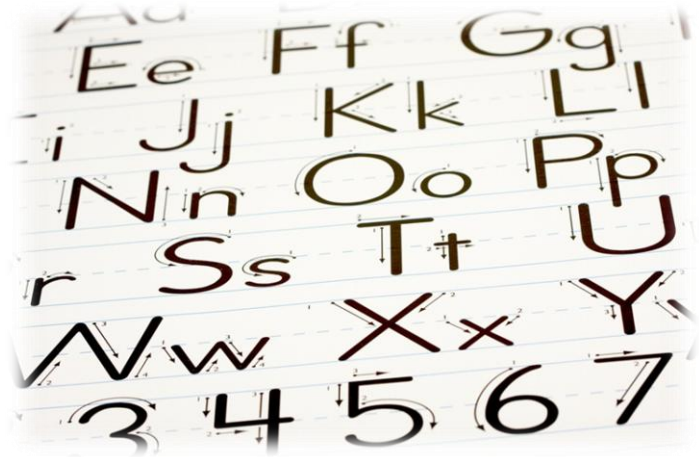 Ee Ff Gg
i Jj Kk Ll
Nn Oo Pp
r Ss Tt U
Ww Xx Y
3 4 5 6 7